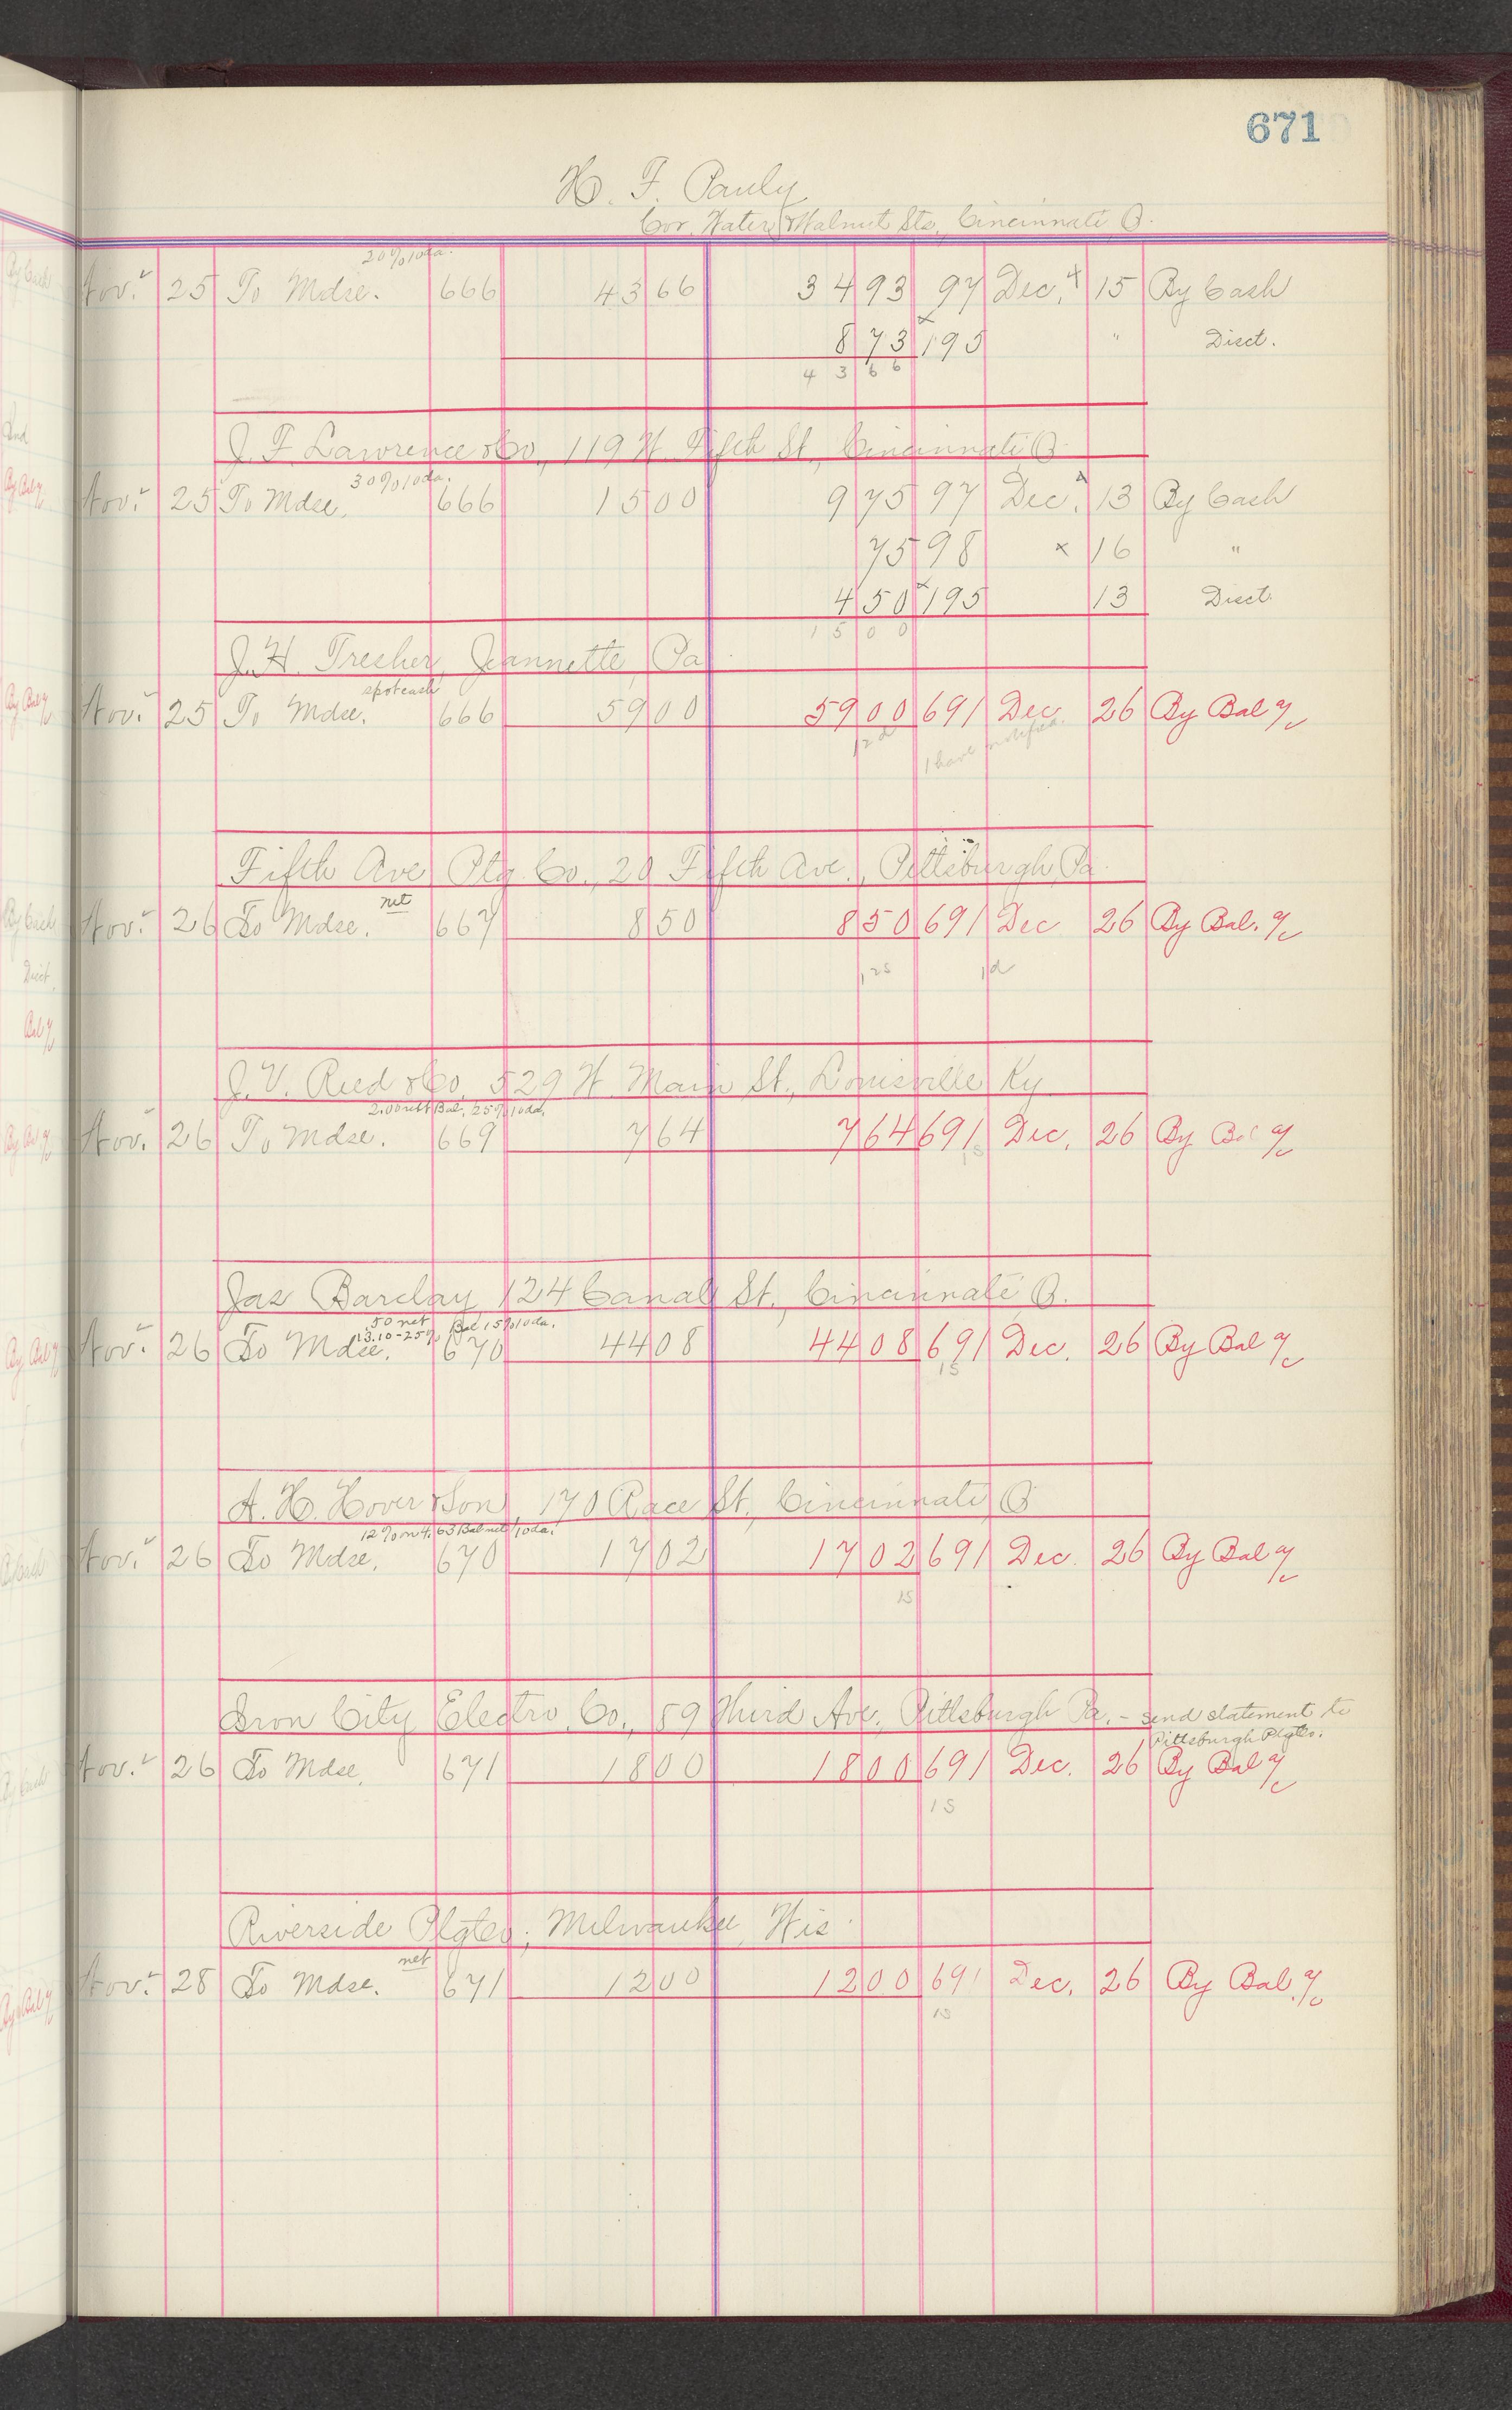 671
H. F. Pauly
Cor. Water & Walnut Sts., Cincinnati, O.
20% 10da.
Nov. 25 To Mdse. 666 43 66 34 93 97 Dec. 15 By Cash
8 73 195 " Disct.
4 3 6 6
J. F. Lawrence & Co., 119 W. Fifth St., Cincinnati, O.
30% 10da.
Nov. 25 To Mdse. 666 15 00 9 75 97 Dec. 13 By Cash
75 98 x 16 "
4 50 195 13 Disct.
1 5 0 0
J. H. Trescher, Jeannette, Pa.
spot cash
Nov. 25 To Mdse. 666 59 00 59 00 691 Dec. 26 By Bal a/c
12d I have notified.
Fifth Ave Ptg. Co., 20 Fifth Ave., Pittsburgh, Pa.
net
Nov. 26 To Mdse. 667 8 50 8 50 691 Dec 26 By Bal. a/c
12s 1d
J. V. Reed & Co., 529 W. Main St., Louisville Ky.
2.00 net Bal. 25% 10da.
Nov. 26 To Mdse. 669 7 64 7 64 691 Dec. 26 By Bal a/c
1s
Jas Barclay, 124 Canal St., Cincinnati O.
.50 net Bal 15% 10da.
13.10-25%
Nov. 26 To Mdse. 670 44 08 44 08 691 Dec. 26 By Bal a/c
1s
A. H. Hover & Son, 170 Race St., Cincinnati, O.
12% on 4.63 Bal net 10da.
Nov. 26 To Mdse. 670 17 02 17 02 691 Dec. 26 By Bal a/c
1s
Iron City Electro. Co., 59 Third Ave., Pittsburgh Pa. - send statement to
Pittsburgh Plgtco.
Nov. 26 To Mdse. 671 18 00 18 00 691 Dec. 26 By Bal a/c
1s
Riverside Plgtco., Milwaukee, Wis.
net
Nov. 28 To Mdse. 671 12 00 12 00 691 Dec. 26 By Bal. a/c
1s